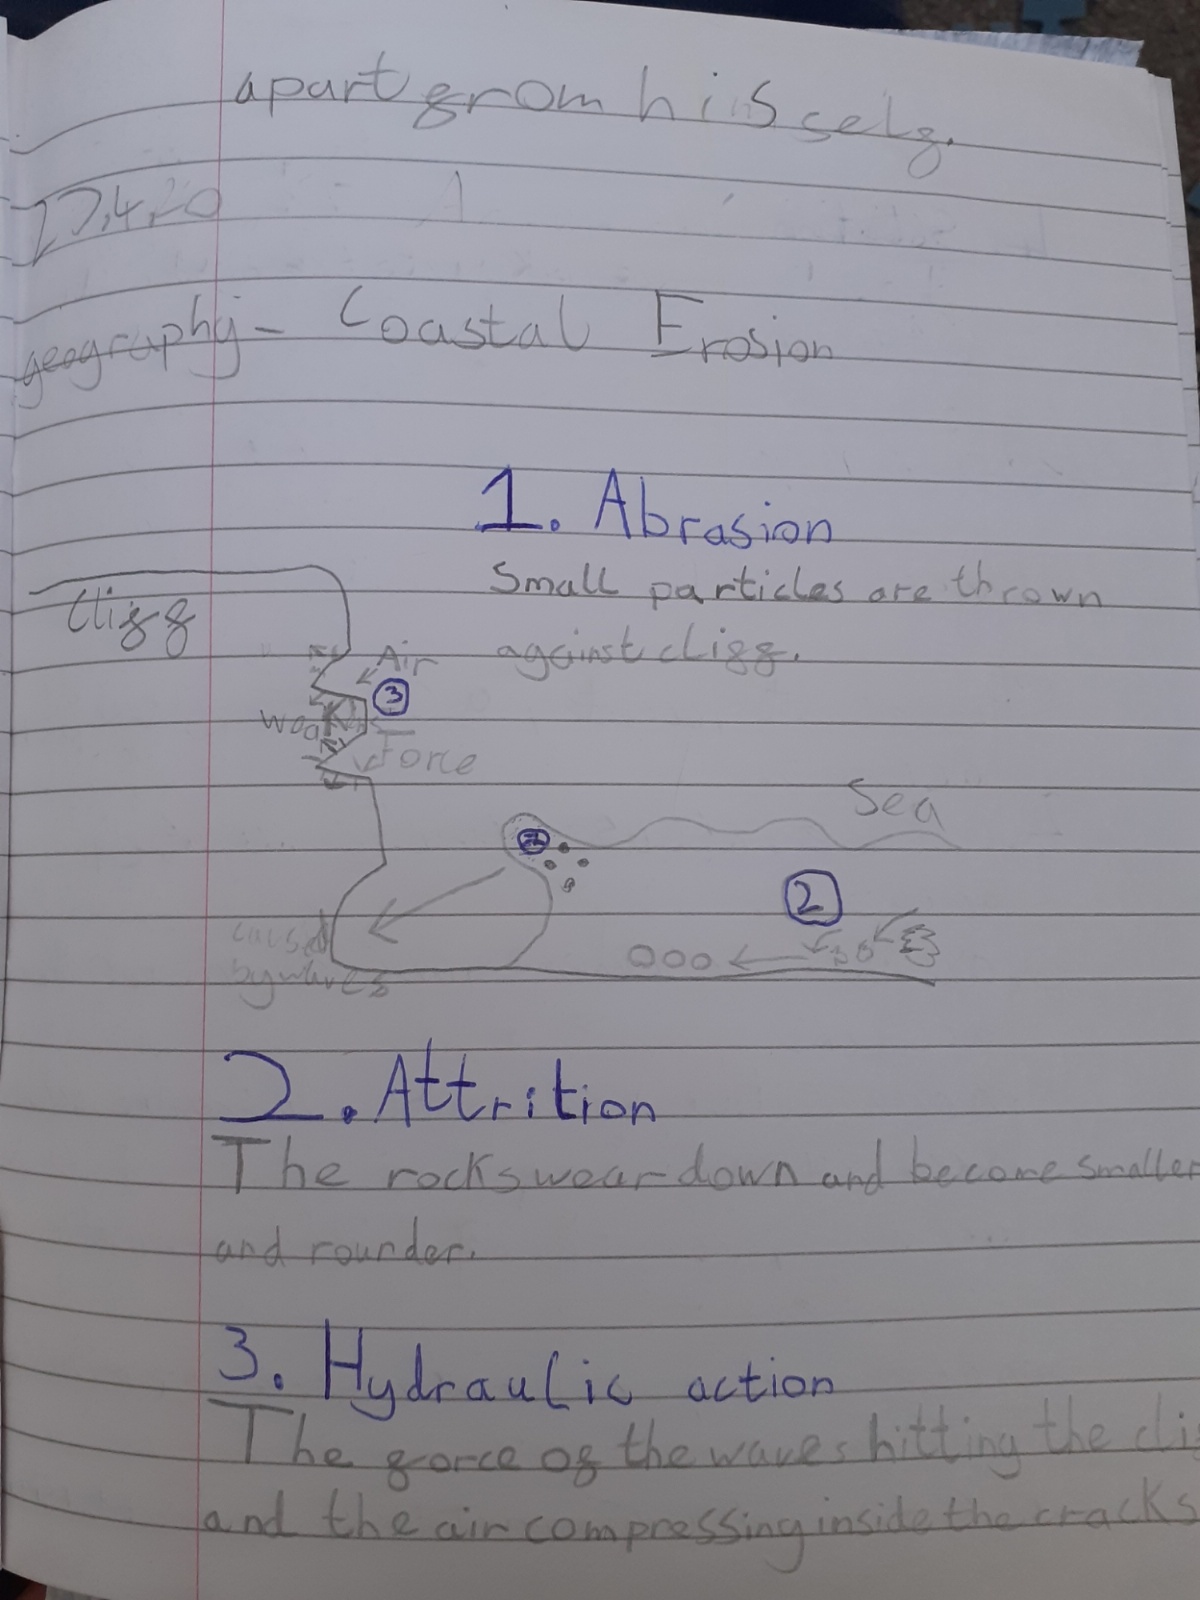 apart from himself.
27.4.20
geography - Coastal Erosion
1. Abrasion
Small particles are thrown
against cliff.
Cliff
Air
3
Weak
Force
Sea
2
caused
by waves
2. Attrition
The rocks wear down and become smaller
and rounder.
3. Hydraulic action
The force of the waves hitting the
and the air compressing inside the cracks